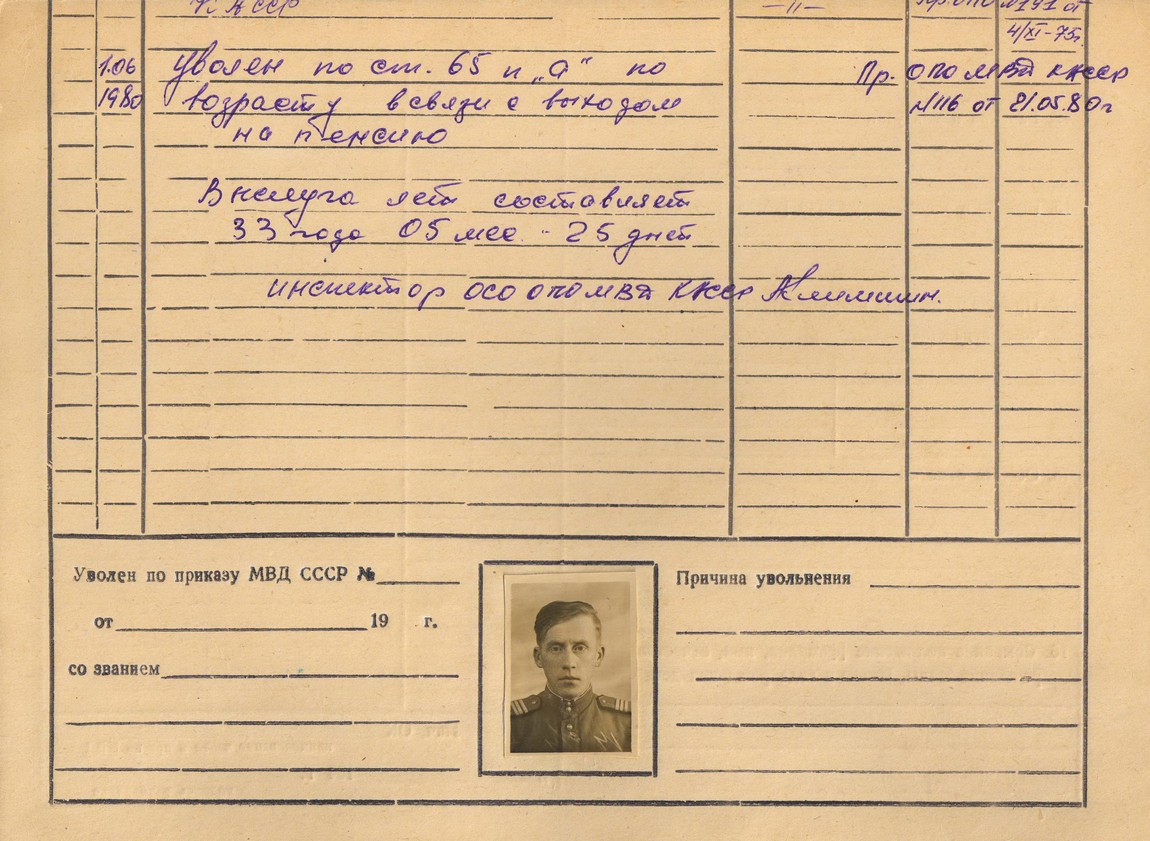 К. АССР —"— Пр. ОПО №191 от
4/XI-75г.
1.06 Уволен по ст. 65 п „а" по Пр. ОПО МВД К АССР
1980 возрасту в связи с выходом №116 от 21.05.80г
на пенсию
Выслуга лет составляет
33 года 05 мес. - 25 дней
инспектор ОСО ОПО МВД К АССР
Уволен по приказу МВД СССР № Причина увольнения
от 19 г.
со званием